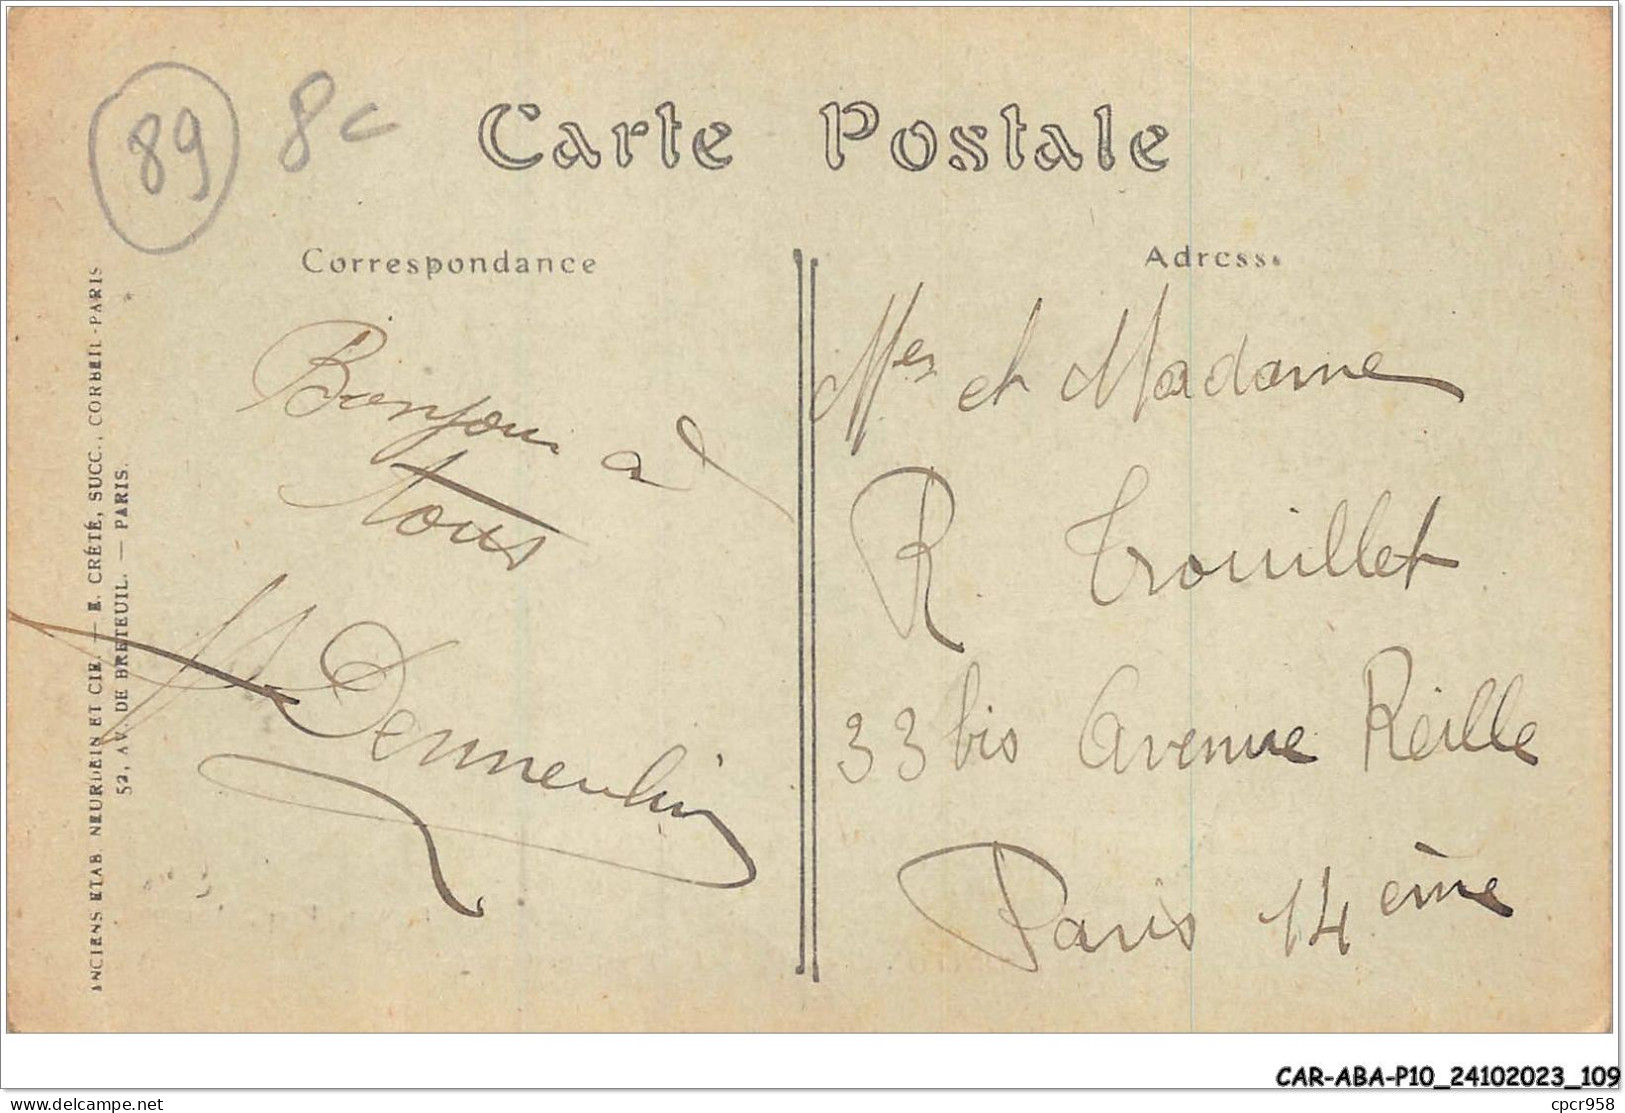 89 8c
Carte Postale
Correspondance
Adresse
Bonjour à
tous
Mer et Madame
R Trouillet
33 bis Avenue Reille
Paris 14ème
ANCIENS ETAB. NEURDEIN ET CIE. — E. CRÉTÉ, SUCC., CORBEIL-PARIS
52, AV. DE BRETEUIL. — PARIS.
CAR-ABA-P10_24102023_109
www.delcampe.net
cpcr958